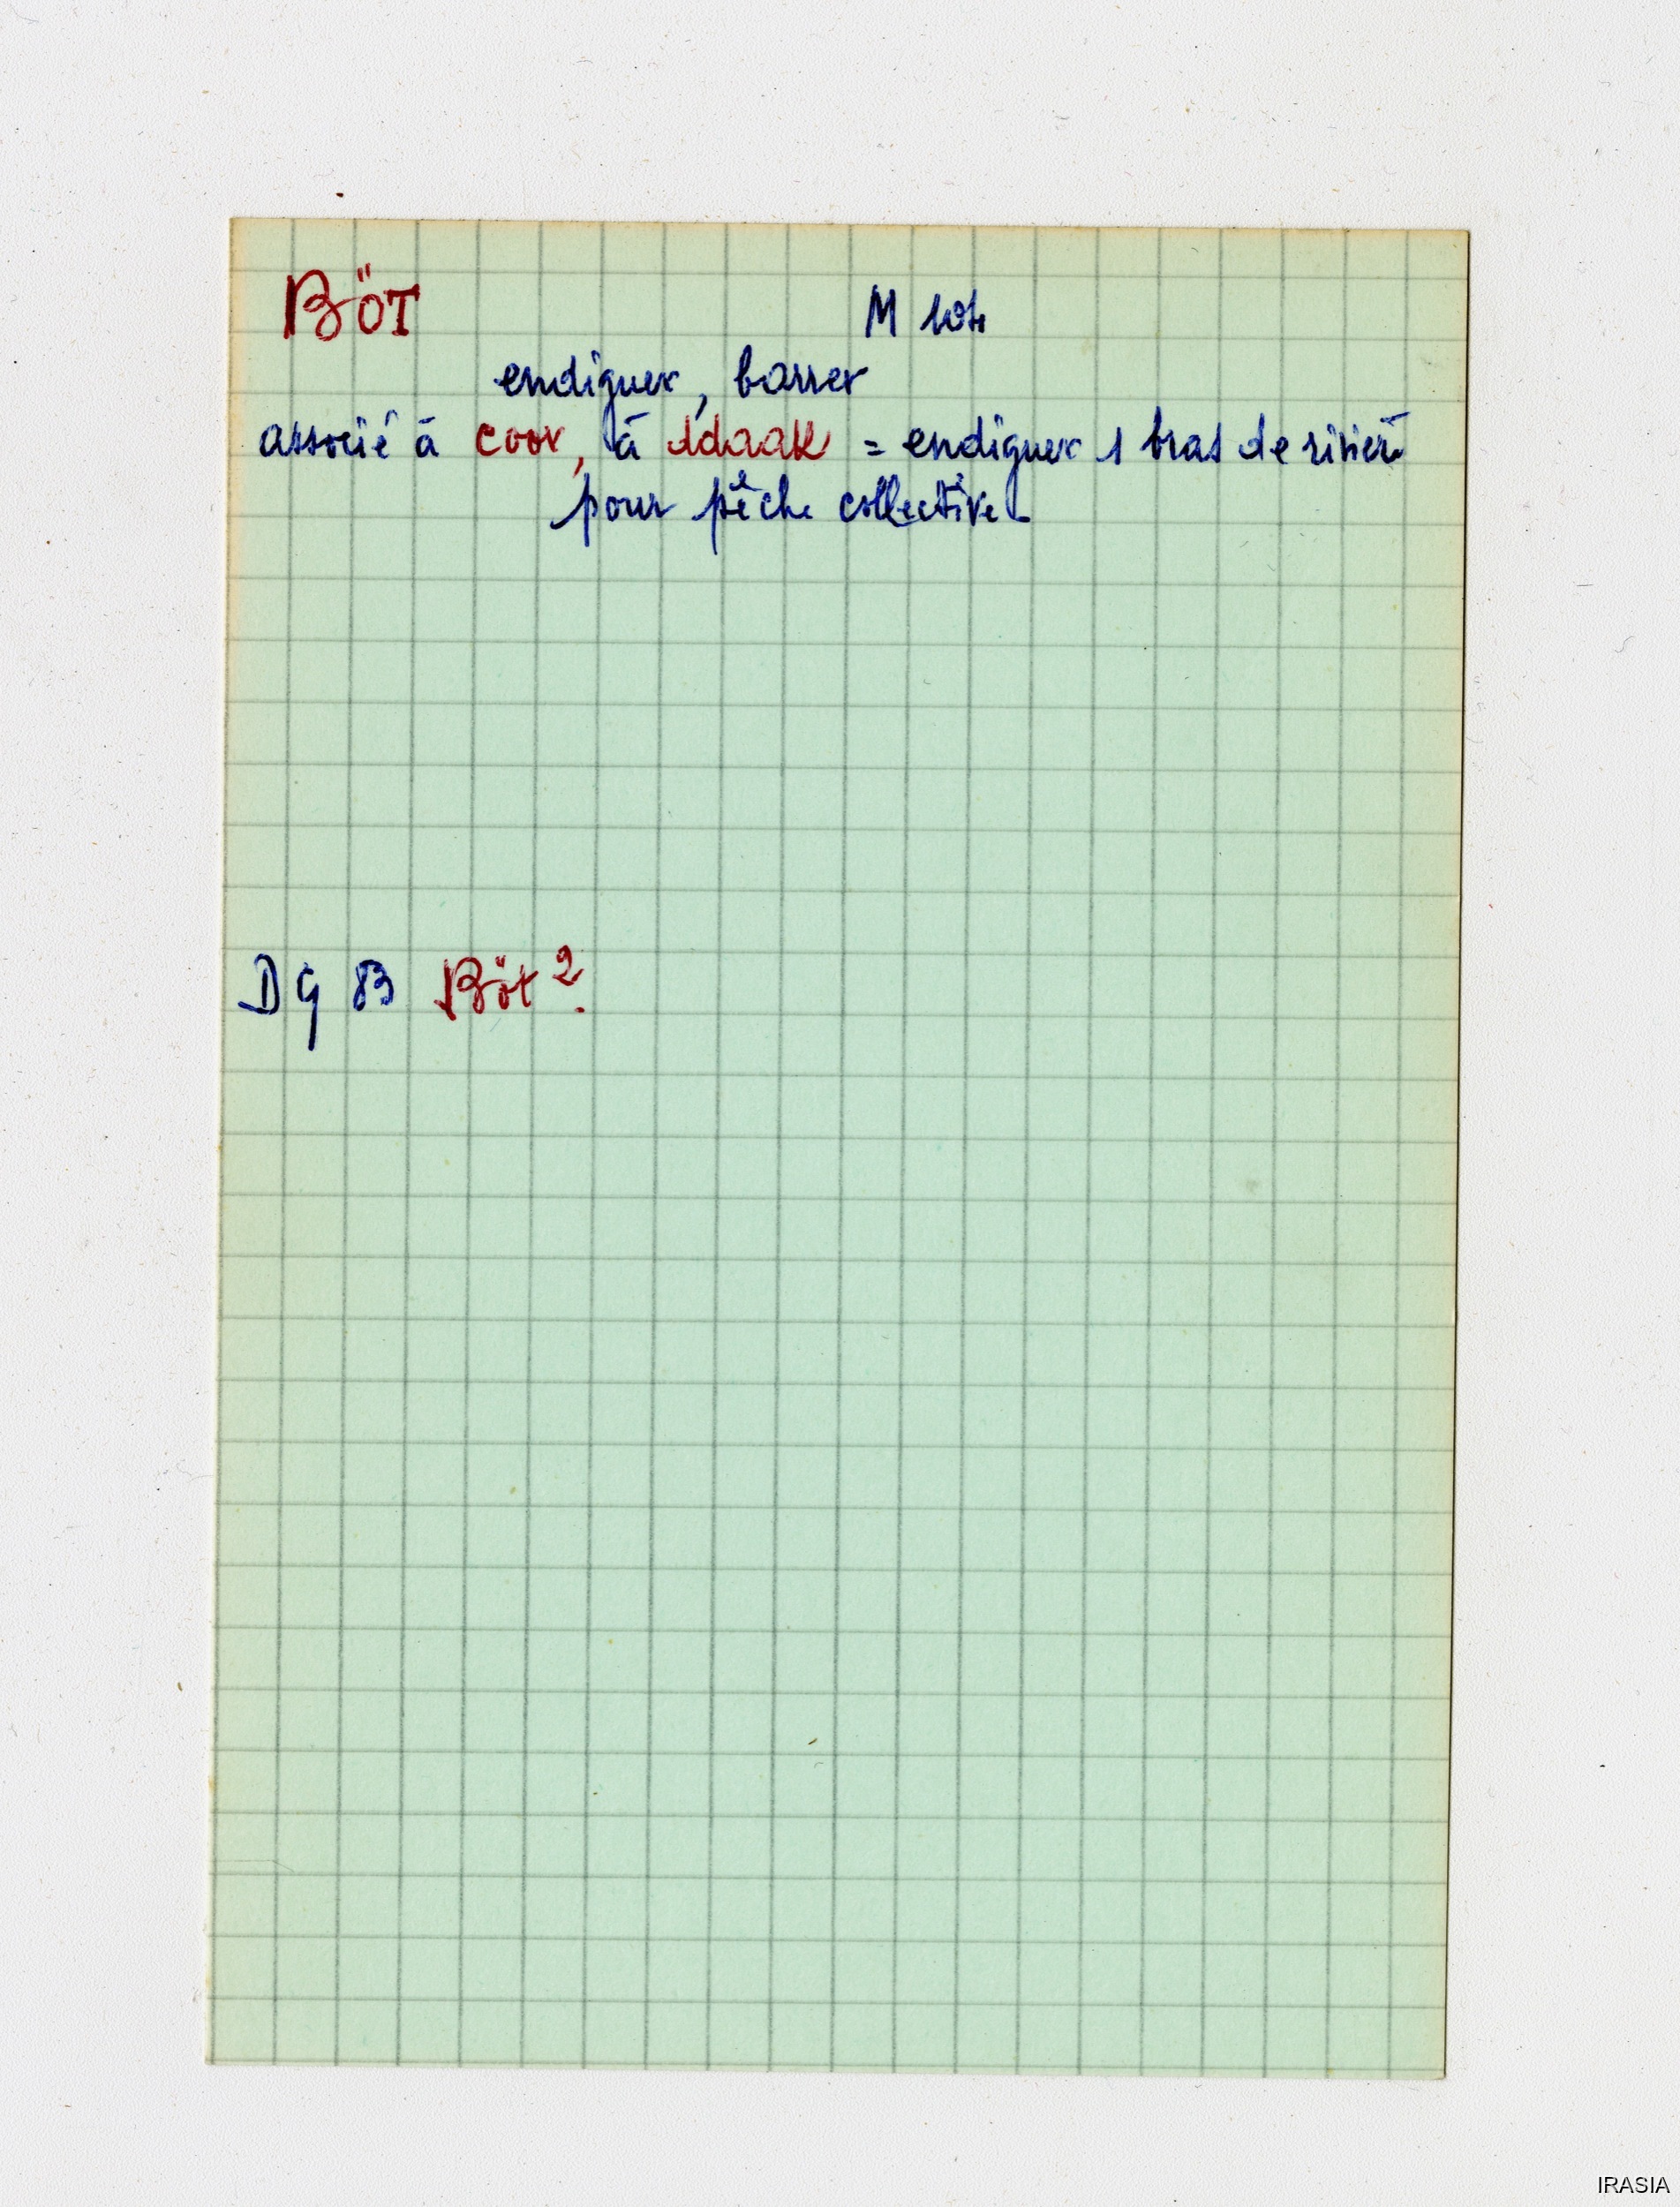 BÖT M 104
endiguer, barrer
associé à coor, à ddaak = endiguer 1 bras de rivièr
pour pêche collective.
DG 83 Böt ?
IRASIA